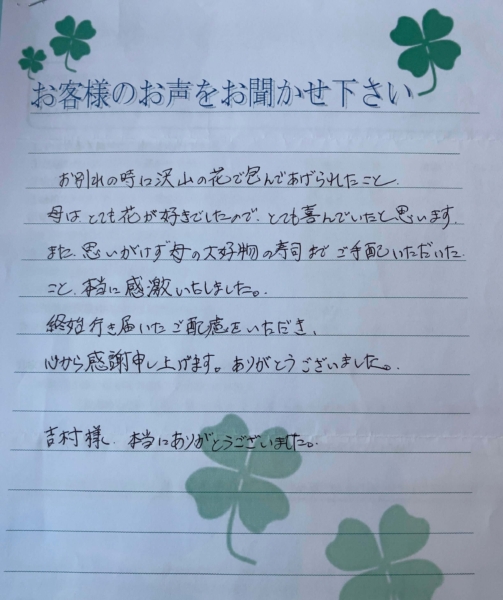 お客様のお声をお聞かせ下さい
お別れの時に沢山の花で包んであげられたこと、
母はとても花が好きでしたので、とても喜んでいたと思います。
また、思いがけず母の大好物の寿司までご手配いただいた
こと、本当に感激いたしました。
終始行き届いたご配慮をいただき、
心から感謝申し上げます。ありがとうございました。
吉村様、本当にありがとうございました。